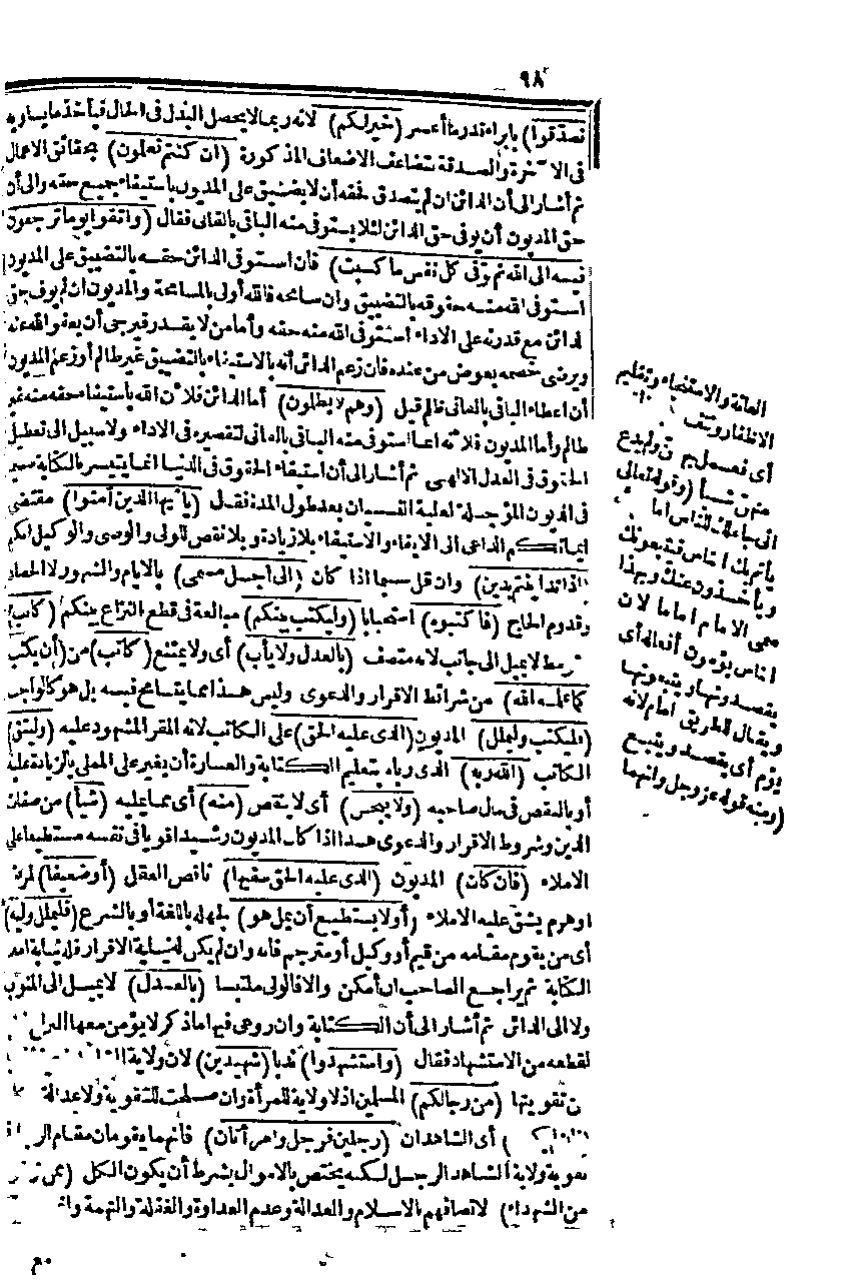 ٩٨
تصدقوا) بابراء قدر ما أعسر (خير لكم) لانه ربما لا يحصل البدل فى الحال فيأخذ ما يساويه
فى الآخرة والصدقة تتضاعف الاضعاف المذكورة (ان كنتم تعلون) بحقائق الاعمال
ثم أشار الى أن الدائن ان لم يتصدق فحقه أن لا يضيق على المديون باستيفاء جميع حقه والى أن
حق المديون أن يوفى حق الدائن لئلا يستوفى منه الباقى بالفانى فقال (واتقوا يوما ترجعون
فيه الى الله ثم توفى كل نفس ما كسبت) فان استوفى الدائن حقه بالتضييق على المديون
استوفى الله منه حقوقه بالتضييق وان سامحه فالله أولى بالمسامحة والمديون ان لم يوف حق
الدائن مع قدرته على الاداء استوفى الله منه حقه وأما من لا يقدر فيرجى أن يعفو الله عنه
ويرضى خصمه بعوض من عنده فان زعم الدائن أنه بالاستيفاء بالتضييق غير ظالم أوزعم المديون
أن اعطاء الباقى بالفانى ظلم قيل (وهم لا يظلون) أما الدائن فلأن الله باستيفاء حقه منه غير
ظالم وأما المديون فلأنه انما استوفى منه الباقى بالفانى لتقصيره فى الاداء ولا سبيل الى تعطيل
الحقوق فى العدل الالهى ثم أشار الى أن استيفاء الحقوق فى الدنيا انما يتيسر بالكتابة سيما
فى الديون المؤجلة لغلبة النسيان بعد طول المدة فقال (يا أيها الذين آمنوا) مقتضى
ايمانكم الداعى الى الايفاء والاستيفاء بلا زيادة وبلا نقص للولى والوصى والوكيل انكم
(اذا تداينتم بدين) وان قل سيما اذا كان (الى أجل مسمى) بالايام والشهور لا الحصاد
وقدوم الحاج (فاكتبوه) استحبابا (وليكتب بينكم) مبالغة فى قطع النزاع بينكم (كاتب)
شرط لا يميل الى جانب لانه متصف (بالعدل ولا يأب) أى ولا يمتنع (كاتب) من (أن يكتب
كما علمه الله) من شرائط الاقرار والدعوى وليس هذا مما يتسامح فيه بل هو كالواجب
(فليكتب وليملل) المديون (الذى عليه الحق) على الكاتب لانه المقر المشهود عليه (وليتق)
الكاتب (الله ربه) الذى رباه بتعليم الكتابة والعبارة أن يغير على المملى بالزيادة عليه
أو بالنقص فى مال صاحبه (ولا يبخس) أى لا ينقص (منه) أى مما يمليه (شيأ) من صفات
الدين وشروط الاقرار والدعوى هذا اذا كان المديون رشيدا قويا فى نفسه مستطيعا على
الاملاء (فان كان) المديون (الذى عليه الحق سفيها) ناقص العقل (أو ضعيفا) لمرض
أو هرم يشق عليه الاملاء (أو لا يستطيع أن يمل هو) لجهله باللغة أو بالشرع (فليملل وليه)
أى من يقوم مقامه من قيم أو وكيل أو مترجم فانه وان لم يكن له نيابة الاقرار فله نيابة املاء
الكتابة ثم يراجع الصاحب ان أمكن والا فالولى ملتبسا (بالعدل) لا يميل الى المنوب
ولا الى الدائن ثم أشار الى أن الكتابة وان روعى فيها ما ذكر لا يؤمن معها النزاع
لقطعه من الاستشهاد فقال (واستشهدوا) ندبا (شهيدين) لان ولاية
تقويتها (من رجالكم) المسلمين اذ لا ولاية للمرأة وان صلحت للتقوية ولا عدالة
) أى الشاهدان (رجلين فرجل وامرأتان) فانهما يقومان مقام
تقوية ولاية الشاهد الرجل لكنه يختص بالاموال بشرط أن يكون الكل (ممن
من الشهداء) لاتصافهم بالاسلام والعدالة وعدم العداوة والغفلة والتهمة
العانة والاستنجاء وتقليم
الاظفار ونتف
أى فعمل بهن ولم يدع
منهن شيأ (وقوله تعالى
انى جاعلك للناس اماما
يأتم بك الناس فيتبعونك
ويأخذون عنك وبهذا
سمى الامام اماما لان
الناس يؤمون أفعاله أى
يقصدونها ويتبعونها
ويقال للطريق امام لانه
يؤم أى يقصد ويتبع
(ومنه قوله عز وجل وانهما